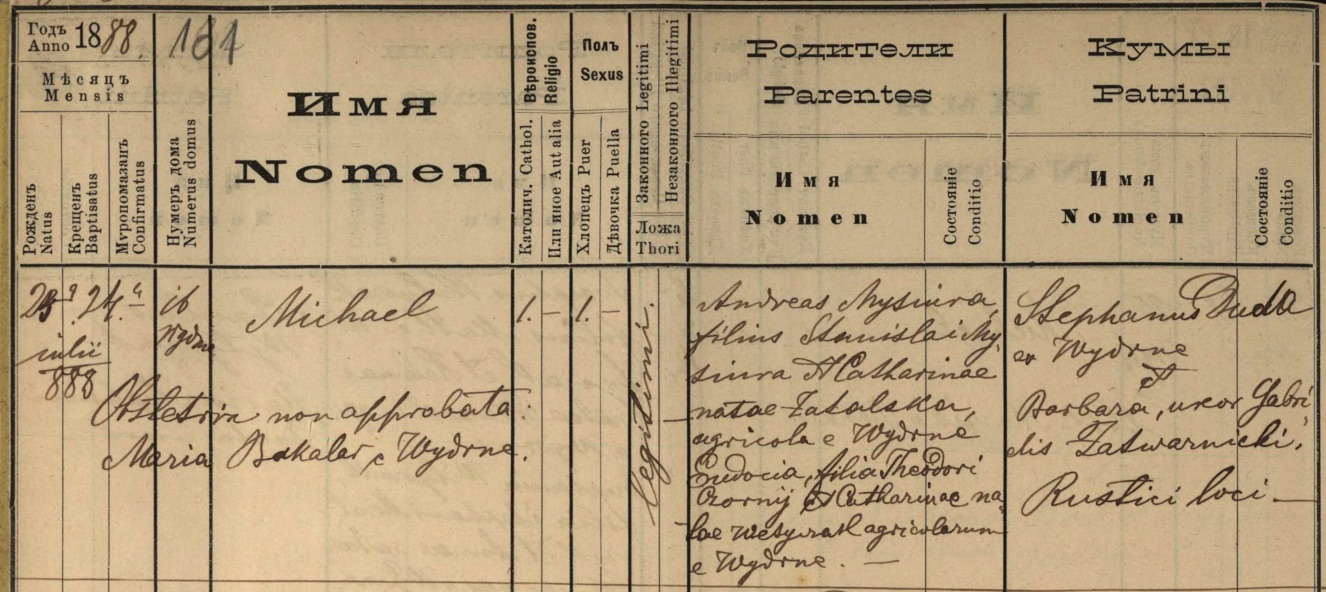 Годъ
Anno 1888.
131
Мѣсяцъ
Mensis
Рожденъ
Natus
Крещенъ
Baptisatus
Муропомазанъ
Confirmatus
Нумеръ дома
Numerus domus
Имя
Nomen
Вѣроисповѣд.
Religio
Католич. Cathol.
Или иное Aut alia
Полъ
Sexus
Хлопецъ Puer
Дѣвочка Puella
Законного Legitimi
Незаконного Illegitimi
Ложа
Thori
Родители
Parentes
Имя
Nomen
Состояніе
Conditio
Кумы
Patrini
Имя
Nomen
Состояніе
Conditio
24.
iulii
888
16
Wydrne
Michael
1. — 1. —
Obstetrix non approbata
Maria Bakalar, e Wydrne.
legitimi.
Andreas Mysiura,
filius Stanislai My-
siura et Catharinae
natae Zatalska,
agricola e Wydrne
Eudocia, filia Theodori
Czornij et Catharinae na-
tae agricolarum
e Wydrne. —
Stephanus Duda
ex Wydrne
et
Barbara, uxor Gabri-
elis Zatwarnicki,
Rustici loci —